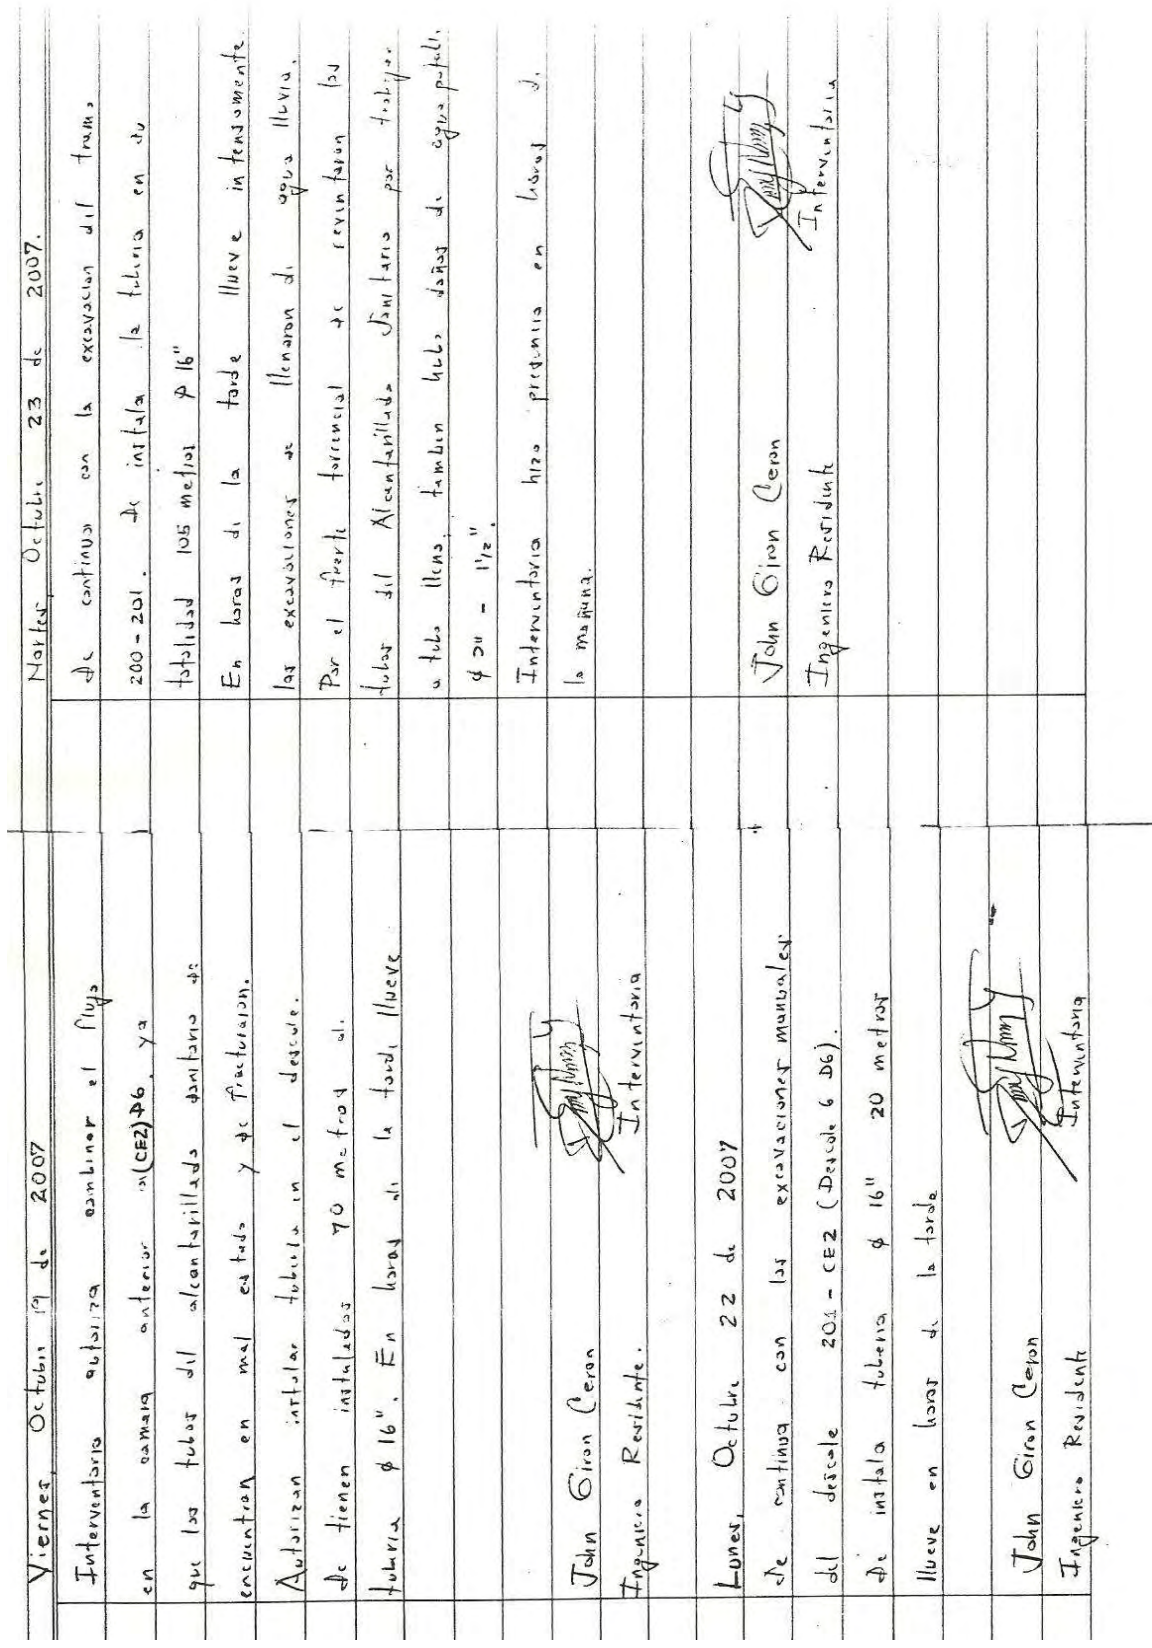 Viernes, Octubre 19 de 2007
Interventoria autoriza combinar el flujo
en la camara anterior a(CE2)D6. ya
que los tubos del alcantarillado sanitario se
encuentran en mal estado y se fracturaron.
Autorizan instalar tuberia en el descole.
Se tienen instalados 70 metros de
tuberia ϕ 16". En horas de la tarde llueve
John Giron Ceron
Ingeniero Residente. Interventoria
Lunes, Octubre 22 de 2007
Se continua con las excavaciones manuales
del descole 201 - CE2 (Descole 6 D6).
Se instala tuberia ϕ 16" 20 metros
llueve en horas de la tarde
John Giron Ceron
Ingeniero Residente Interventoria
Martes Octubre 23 de 2007.
Se continua con la excavacion del tramo
200 - 201. Se instala la tuberia en su
totalidad 105 metros ϕ 16"
En horas de la tarde llueve intensamente.
las excavaciones se llenaron de agua lluvia.
Por el fuerte torrencial se reventaron los
tubos del Alcantarillado Sanitario por trabajar
a tubo lleno, tambien hubo daños de agua potable.
ϕ 2" - 1 1/2".
Interventoria hizo presencia en horas de
la mañana.
John Giron Ceron
Ingeniero Residente Interventoria